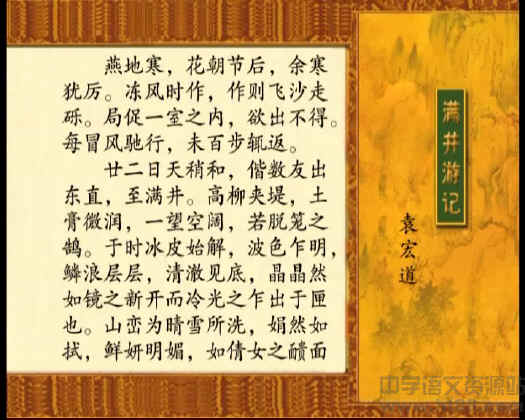 燕地寒，花朝节后，余寒
犹厉。冻风时作，作则飞沙走
砾。局促一室之内，欲出不得。
每冒风驰行，未百步辄返。
廿二日天稍和，偕数友出
东直，至满井。高柳夹堤，土
膏微润，一望空阔，若脱笼之
鹄。于时冰皮始解，波色乍明，
鳞浪层层，清澈见底，晶晶然
如镜之新开而冷光之乍出于匣
也。山峦为晴雪所洗，娟然如
拭，鲜妍明媚，如倩女之靧面
满井游记
袁宏道
中学语文资源站